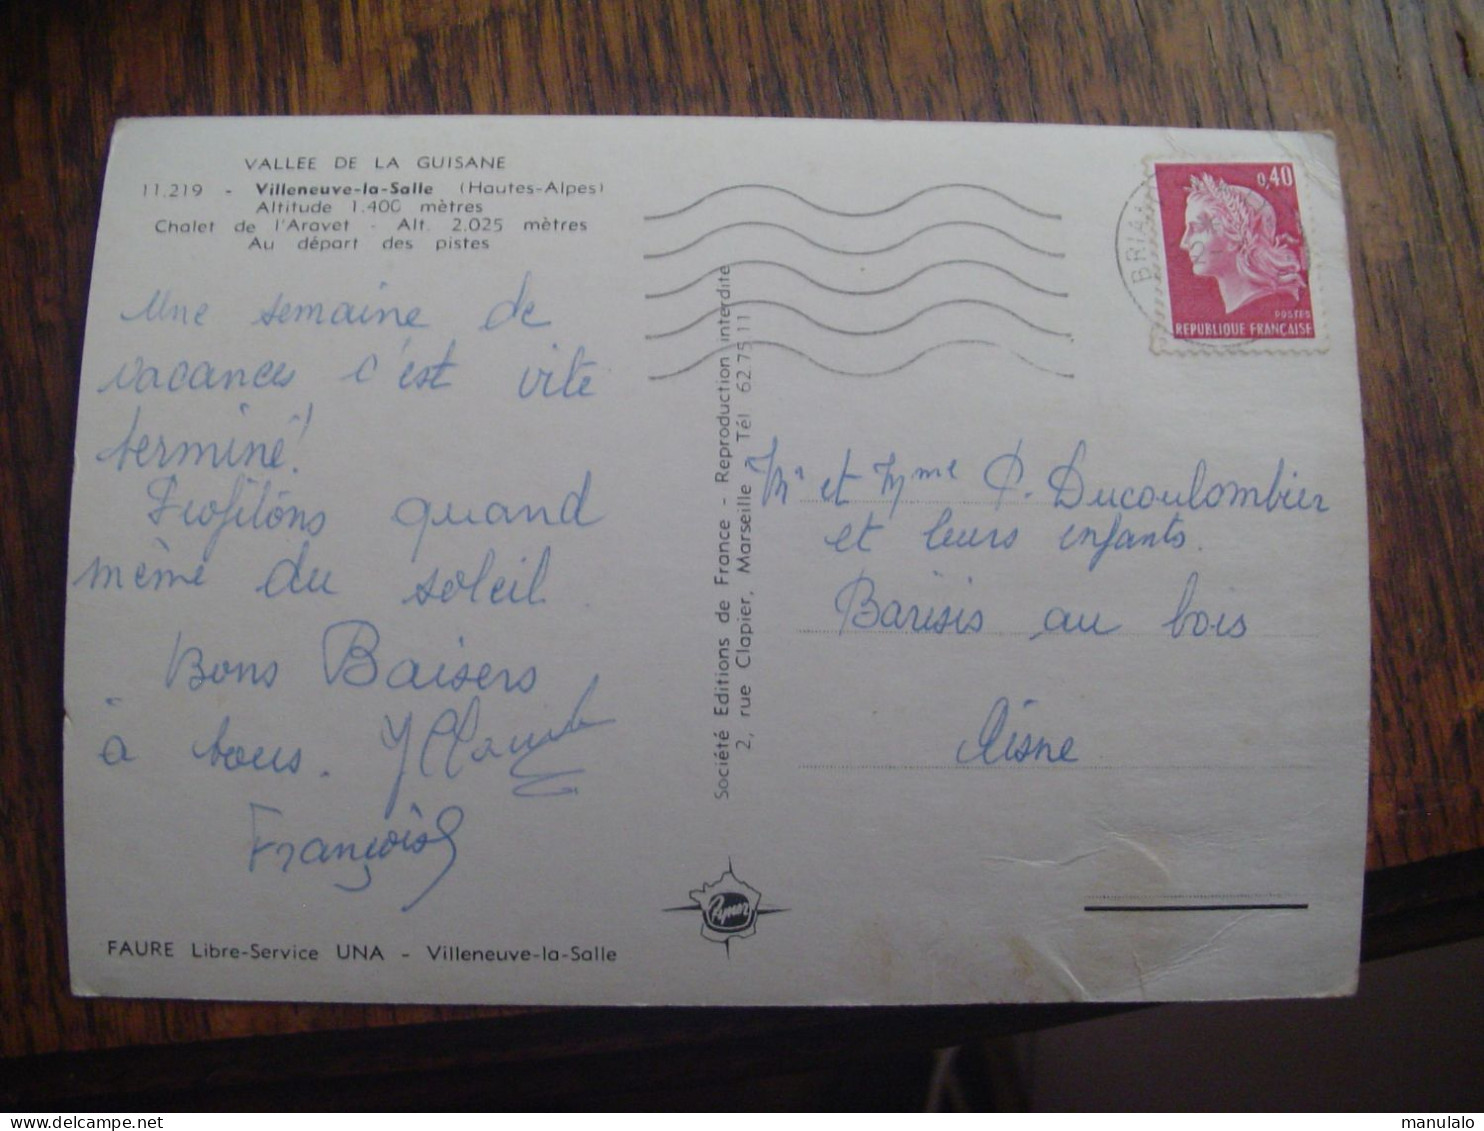 VALLEE DE LA GUISANE
11.219 - Villeneuve-la-Salle (Hautes-Alpes)
Altitude 1.400 mètres
Chalet de l'Aravet - Alt. 2.025 mètres
Au départ des pistes
Une semaine de
vacances c'est vite
terminé!
Profitons quand
même du soleil.
Bons Baisers
à tous.
François
FAURE Libre-Service UNA - Villeneuve-la-Salle
Société Editions de France - Reproduction interdite
2, rue Clapier, Marseille Tél 62.75.11
Rymer
BRIAN
0,40
POSTES
REPUBLIQUE FRANÇAISE
Mr et Mme P. Ducoulombier
et leurs enfants.
Barisis au bois
Aisne
www.delcampe.net
manulalo